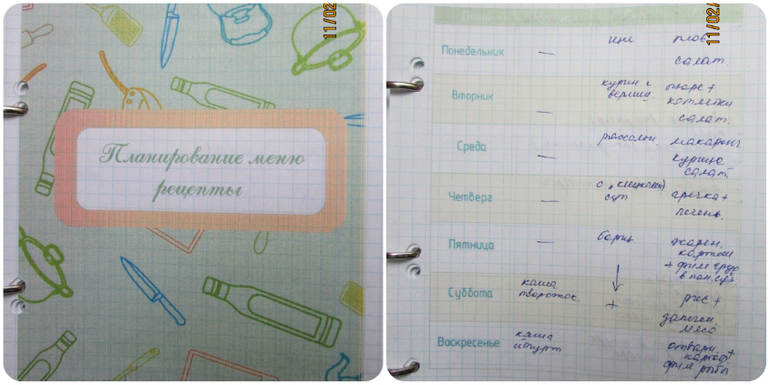 11/02
Планирование меню
рецепты
11/02
Понедельник — щи плов
салат
Вторник — курин с вермиш пюре +
котлетки
салат
Среда — рассольн. макароны
курица
салат
Четверг — с "клецками" суп гречка +
печень
Пятница — борщ жарен.
картош
+ филе груд
Суббота каша творожок + рис +
запечен
мясо
Воскресенье каша йогурт отварн.
картоф +
филе рыбы